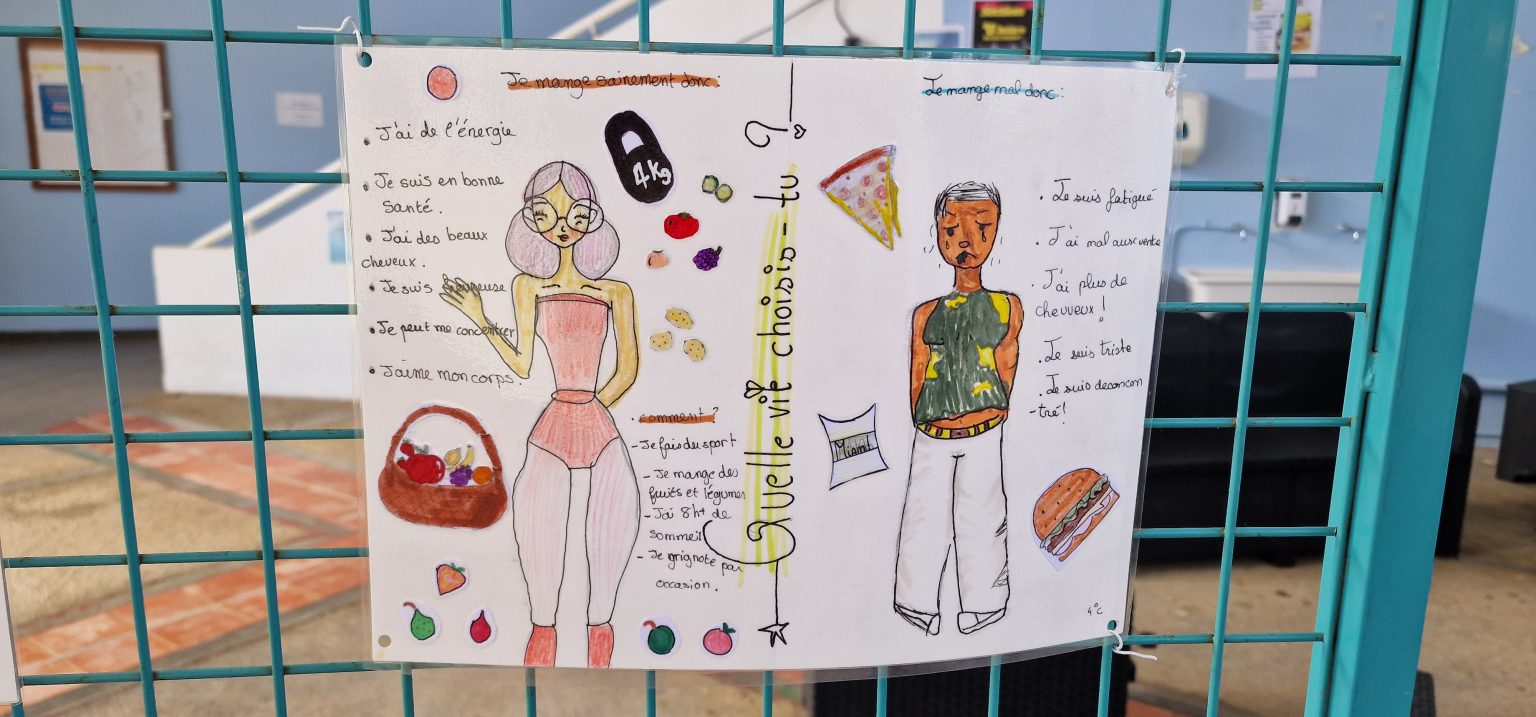 Je mange sainement donc :
• J'ai de l'énergie
• Je suis en bonne
Santé.
• J'ai des beaux
cheveux.
• Je suis
• Je peut me concentrer
• J'aime mon corps.
4kg
comment ?
- Je fais du sport
- Je mange des
fruits et légumes
- J'ai 8ht de
sommeil
- Je grignote par
occasion.
Quelle vie choisis-tu ?
Je mange mal donc :
• Je suis fatigué
• J'ai mal aux ventre
• J'ai plus de
cheuveux !
• Je suis triste
• Je suis deconcen
-tré !
4°C